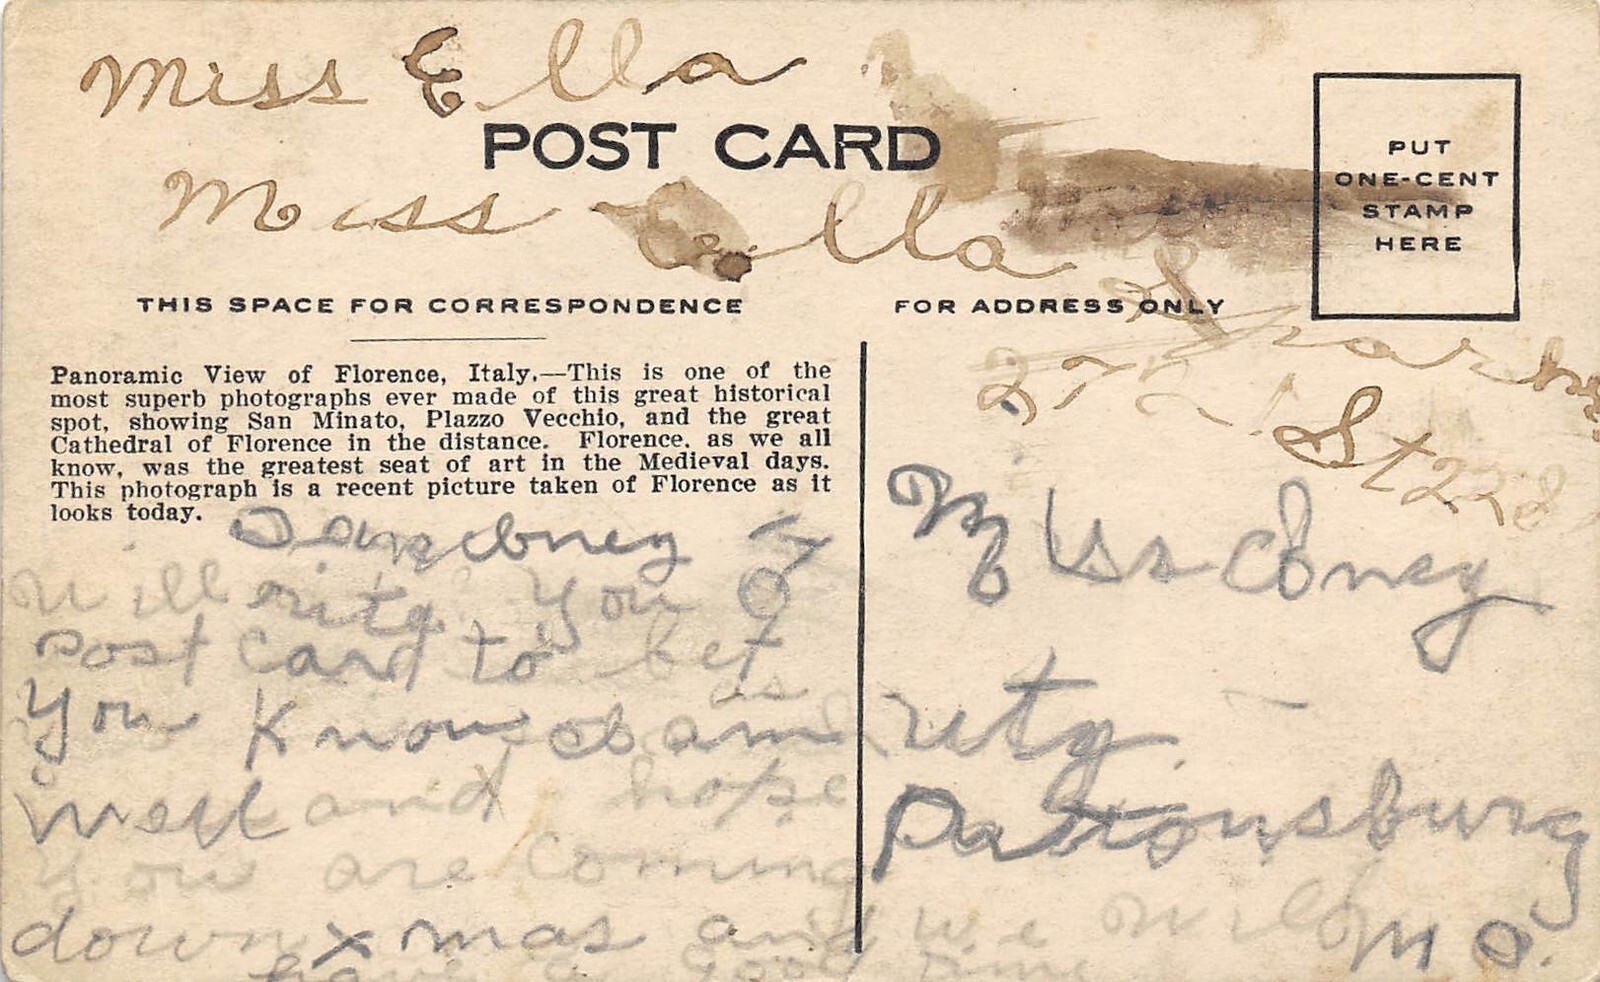 Miss Ella
POST CARD
Miss Ella
PUT
ONE-CENT
STAMP
HERE
THIS SPACE FOR CORRESPONDENCE
FOR ADDRESS ONLY
Panoramic View of Florence, Italy.—This is one of the
most superb photographs ever made of this great historical
spot, showing San Minato, Plazzo Vecchio, and the great
Cathedral of Florence in the distance. Florence. as we all
know, was the greatest seat of art in the Medieval days.
This photograph is a recent picture taken of Florence as it
looks today.
St 228
I
will you a
post card to let
you know am
well and hope
you are coming
down xmas and we will
have a good time
Miss
Pattonsburg
Mo.